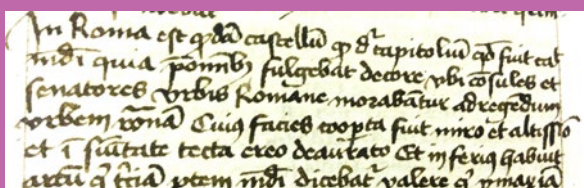 In Roma est qdā castellū qo dr capitoliū qd fuit cat
mūdi quia pōnibꝫ fulgebat decore vbi cōsules et
senatores vrbis Romane morabātur ad regēdum
vrbem rōnā Cuiꝰ facies coopta fuit miro et altissīo
et ī sūitate tecta ereo deaurato Et inferiꝰ habuit
ptem mūdi dicebat valere